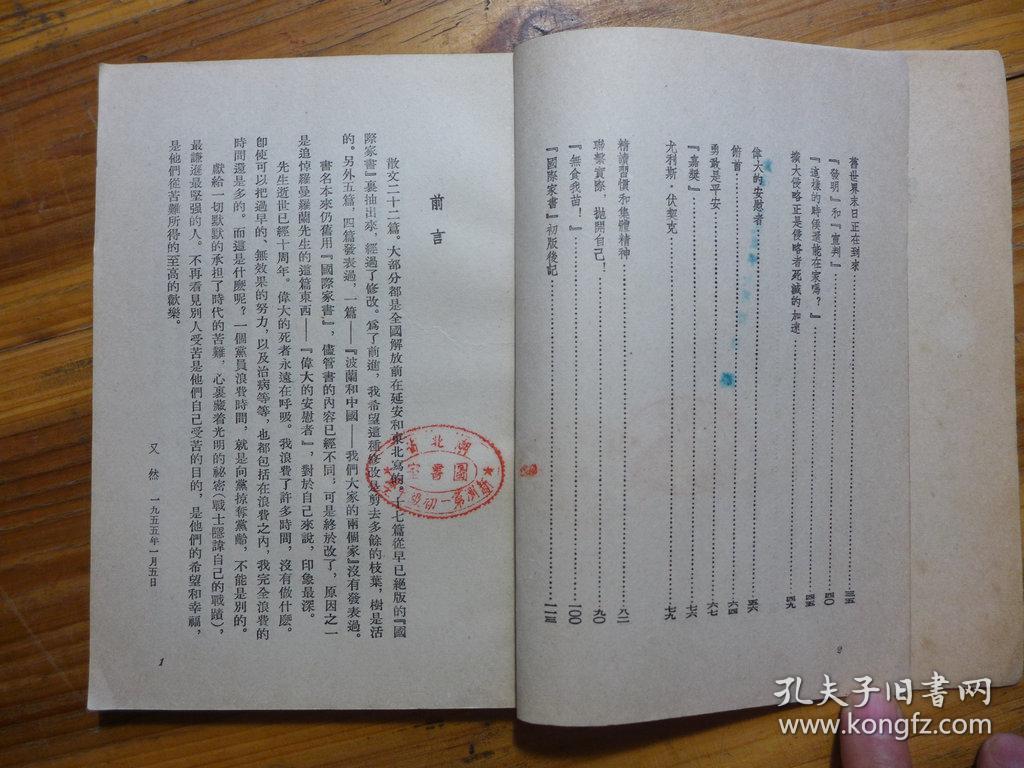 舊世界末日正在到來……三五
『發明』和『宣判』……四〇
『這樣的時候還能在家嗎？』……四五
擴大侵略正是侵略者死滅的加速……四九
偉大的安慰者……五六
俯首……六四
勇敢是平安……六七
『嘉獎』……七六
尤利斯·伏契克……七九
精讀習慣和集體精神……八二
聯繫實際，拋開自己！……九〇
『無食我苗！』……一〇〇
『國際家書』初版後記……一一三
2
前言
散文二十二篇。大部分都是全國解放前在延安和東北寫的。十七篇從早已絕版的『國
際家書』裏抽出來，經過了修改。爲了前進，我希望這種修改是剪去多餘的枝葉，樹是活
的。另外五篇，四篇發表過，一篇——『波蘭和中國——我們大家的兩個家』沒有發表過。
書名本來仍舊用『國際家書』，儘管書的內容已經不同，可是終於改了，原因之一
是追悼羅曼羅蘭先生的這篇東西——『偉大的安慰者』，對於自己來說，印象最深。
先生逝世已經十周年。偉大的死者永遠在呼吸。我浪費了許多時間，沒有做什麽。
卽使可以把過早的、無效果的努力，以及治病等等，也都包括在浪費之內，我完全浪費的
時間還是多的。而這是什麽呢？一個黨員浪費時間，就是向黨掠奪黨齡，不能是別的。
獻給一切默默的承担了時代的苦難，心裏藏着光明的祕密（戰士隱諱自己的戰蹟），
最謙遜最堅强的人。不再看見別人受苦是他們自己受苦的目的，是他們的希望和幸福，
是他們從苦難所得的至高的歡樂。
又然 一九五五年一月五日
1
湖北省
圖書室
孔夫子旧书网
www.kongfz.com